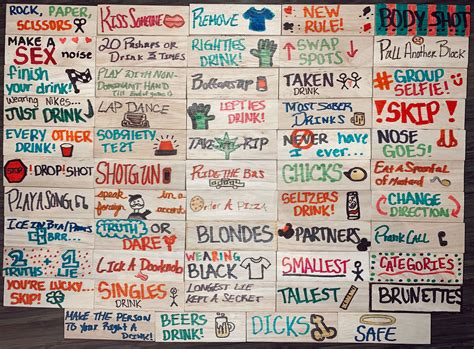 ROCK, PAPER,
SCISSORS
KISS SOMEONE
REMOVE
NEW
RULE!
BODY SHOT
MAKE A
SEX noise
20 Pushups or
Drink 3 TIMES
RIGHTIES
DRINK!
SWAP
SPOTS
Pull Another Block
finish
your drink!
PLAY WITH NON-
DOMINANT HAND
Till End of
Bottoms up
TAKEN
DRINK
#GROUP
SELFIE!
Wearing NIKES...
JUST DRINK!
LAP DANCE
LEFTIES
DRINK!
MOST SOBER
DRINKS
!SKIP!
EVERY OTHER
DRINK!
SOBRIETY
TEST
TAKE RIP
NEVER have
I ever...
NOSE
GOES!
!DROP!SHOT
SHOTGUN
RIDE THE BUS
CHICKS
Eat a Spoonful
of Mustard
PLAY A SONG
speak in a
foreign accent
Order A PIZZA
SELTZERS
DRINK!
CHANGE
DIRECTION
ICE IN BRA/PANTS
BRR...
TRUTH
OR
DARE
BLONDES
PARTNERS
Prank Call
2 + 1
TRUTHS LIE
Lick A Dookndo
WEARING
BLACK
SMALLEST
CATEGORIES
YOU'RE LUCKY...
SKIP!
SINGLES
DRINK
LONGEST LIE
KEPT A SECRET
TALLEST
BRUNETTES
MAKE THE PERSON
TO YOUR RIGHT A
DRINK!
BEERS
DRINK!
DICKS
SAFE